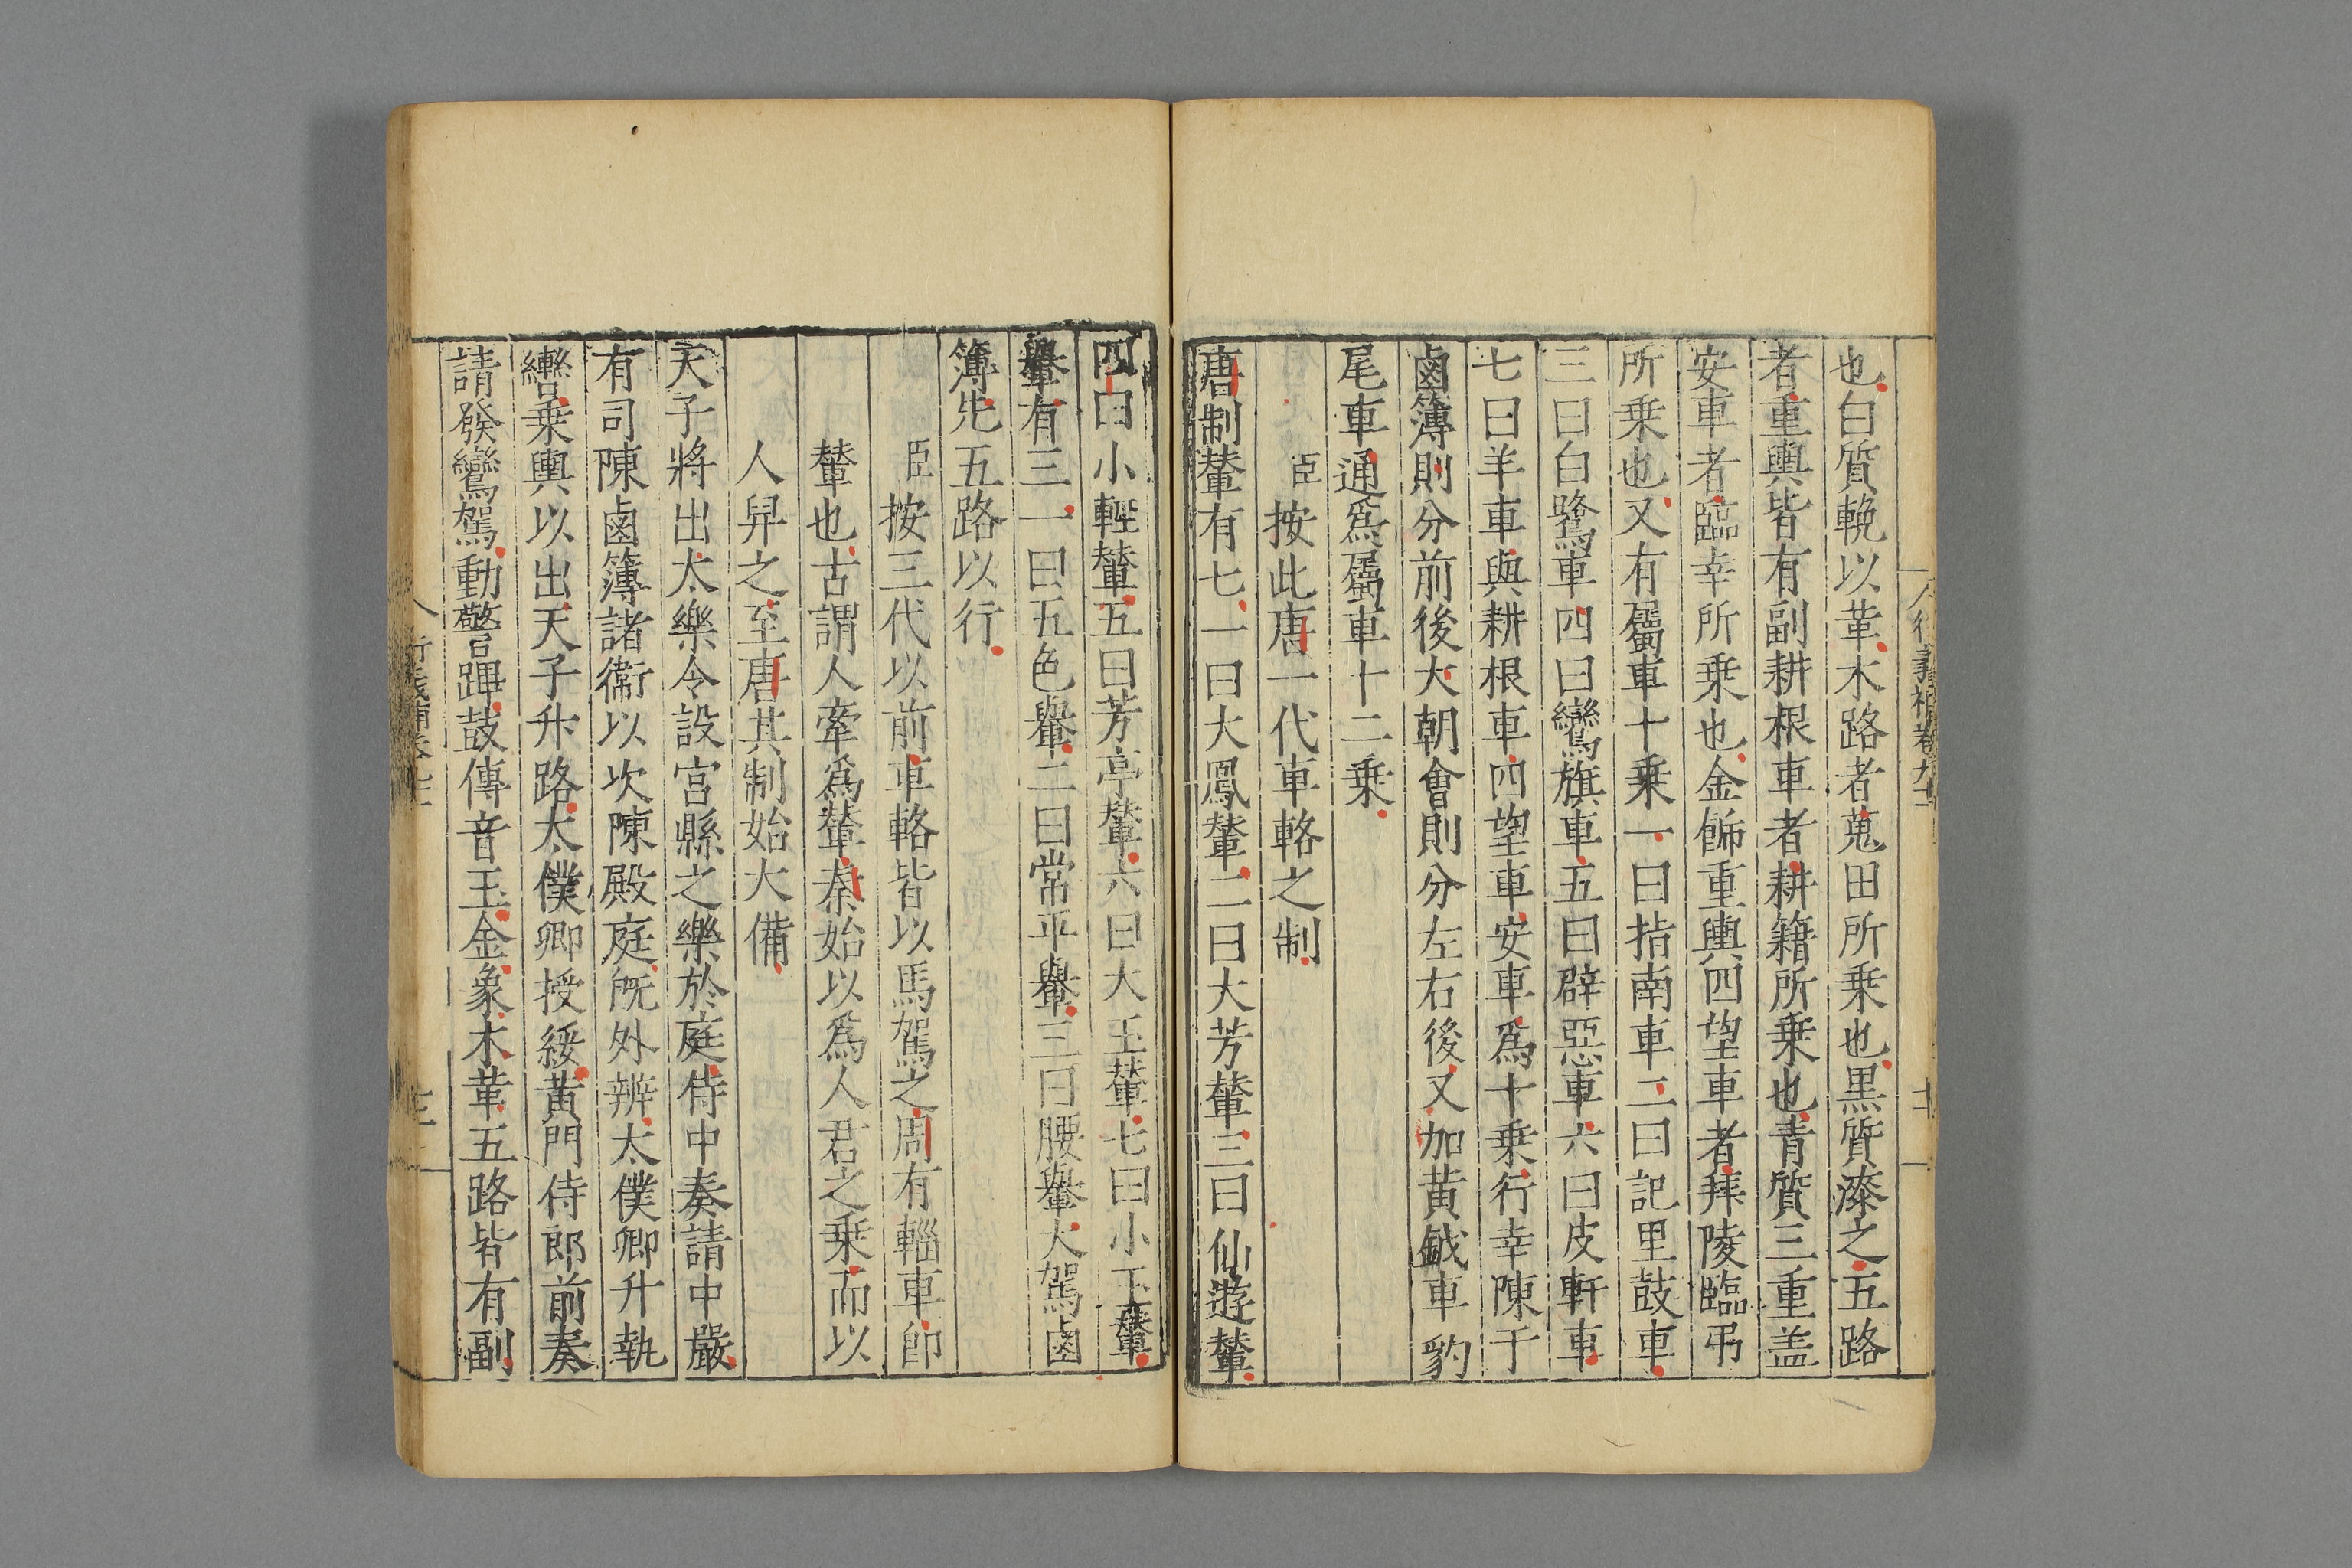 也白質輓以革木路者蒐田所乗也黒質漆之五路
者重輿皆有副耕根車者耕籍所乗也青質三重盖
安車者臨幸所乗也金飾重輿四望車者拜陵臨弔
所乗也又有屬車十乗一曰指南車二曰記里鼓車
三曰白鷺車四曰鸞旗車五曰辟惡車六曰皮軒車
七曰羊車與耕根車四望車安車爲十乗行幸陳于
鹵簿則分前後大朝會則分左右後又加黃鉞車豹
尾車通爲屬車十二乗
臣按此唐一代車輅之制
唐制輦有七一曰大鳳輦二曰大芳輦三曰仙遊輦
四曰小輕輦五曰芳亭輦六曰大玉輦七曰小玉輦
轝有三一曰五色轝二曰常平轝三曰腰轝大駕鹵
簿先五路以行
臣按三代以前車輅皆以馬駕之周有輜車卽
輦也古謂人牽爲輦秦始以爲人君之乗而以
人舁之至唐其制始大備
天子將出太樂令設宮縣之樂於庭侍中奏請中嚴
有司陳鹵簿諸衞以次陳殿庭旣外辨太僕卿升執
轡乗輿以出天子升路太僕卿授綏黃門侍郎前奏
請發鸞駕動警蹕鼓傳音玉金象木革五路皆有副